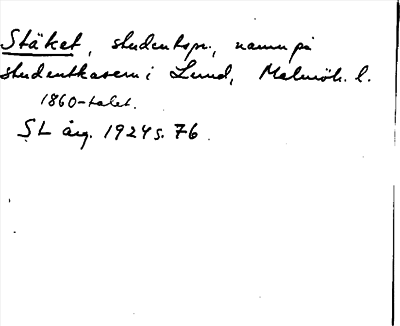 Stäket, studentspr., namn på
studentkasern i Lund, Malmöh. l.
1860-talet.
SL årg. 1924 s. 76.